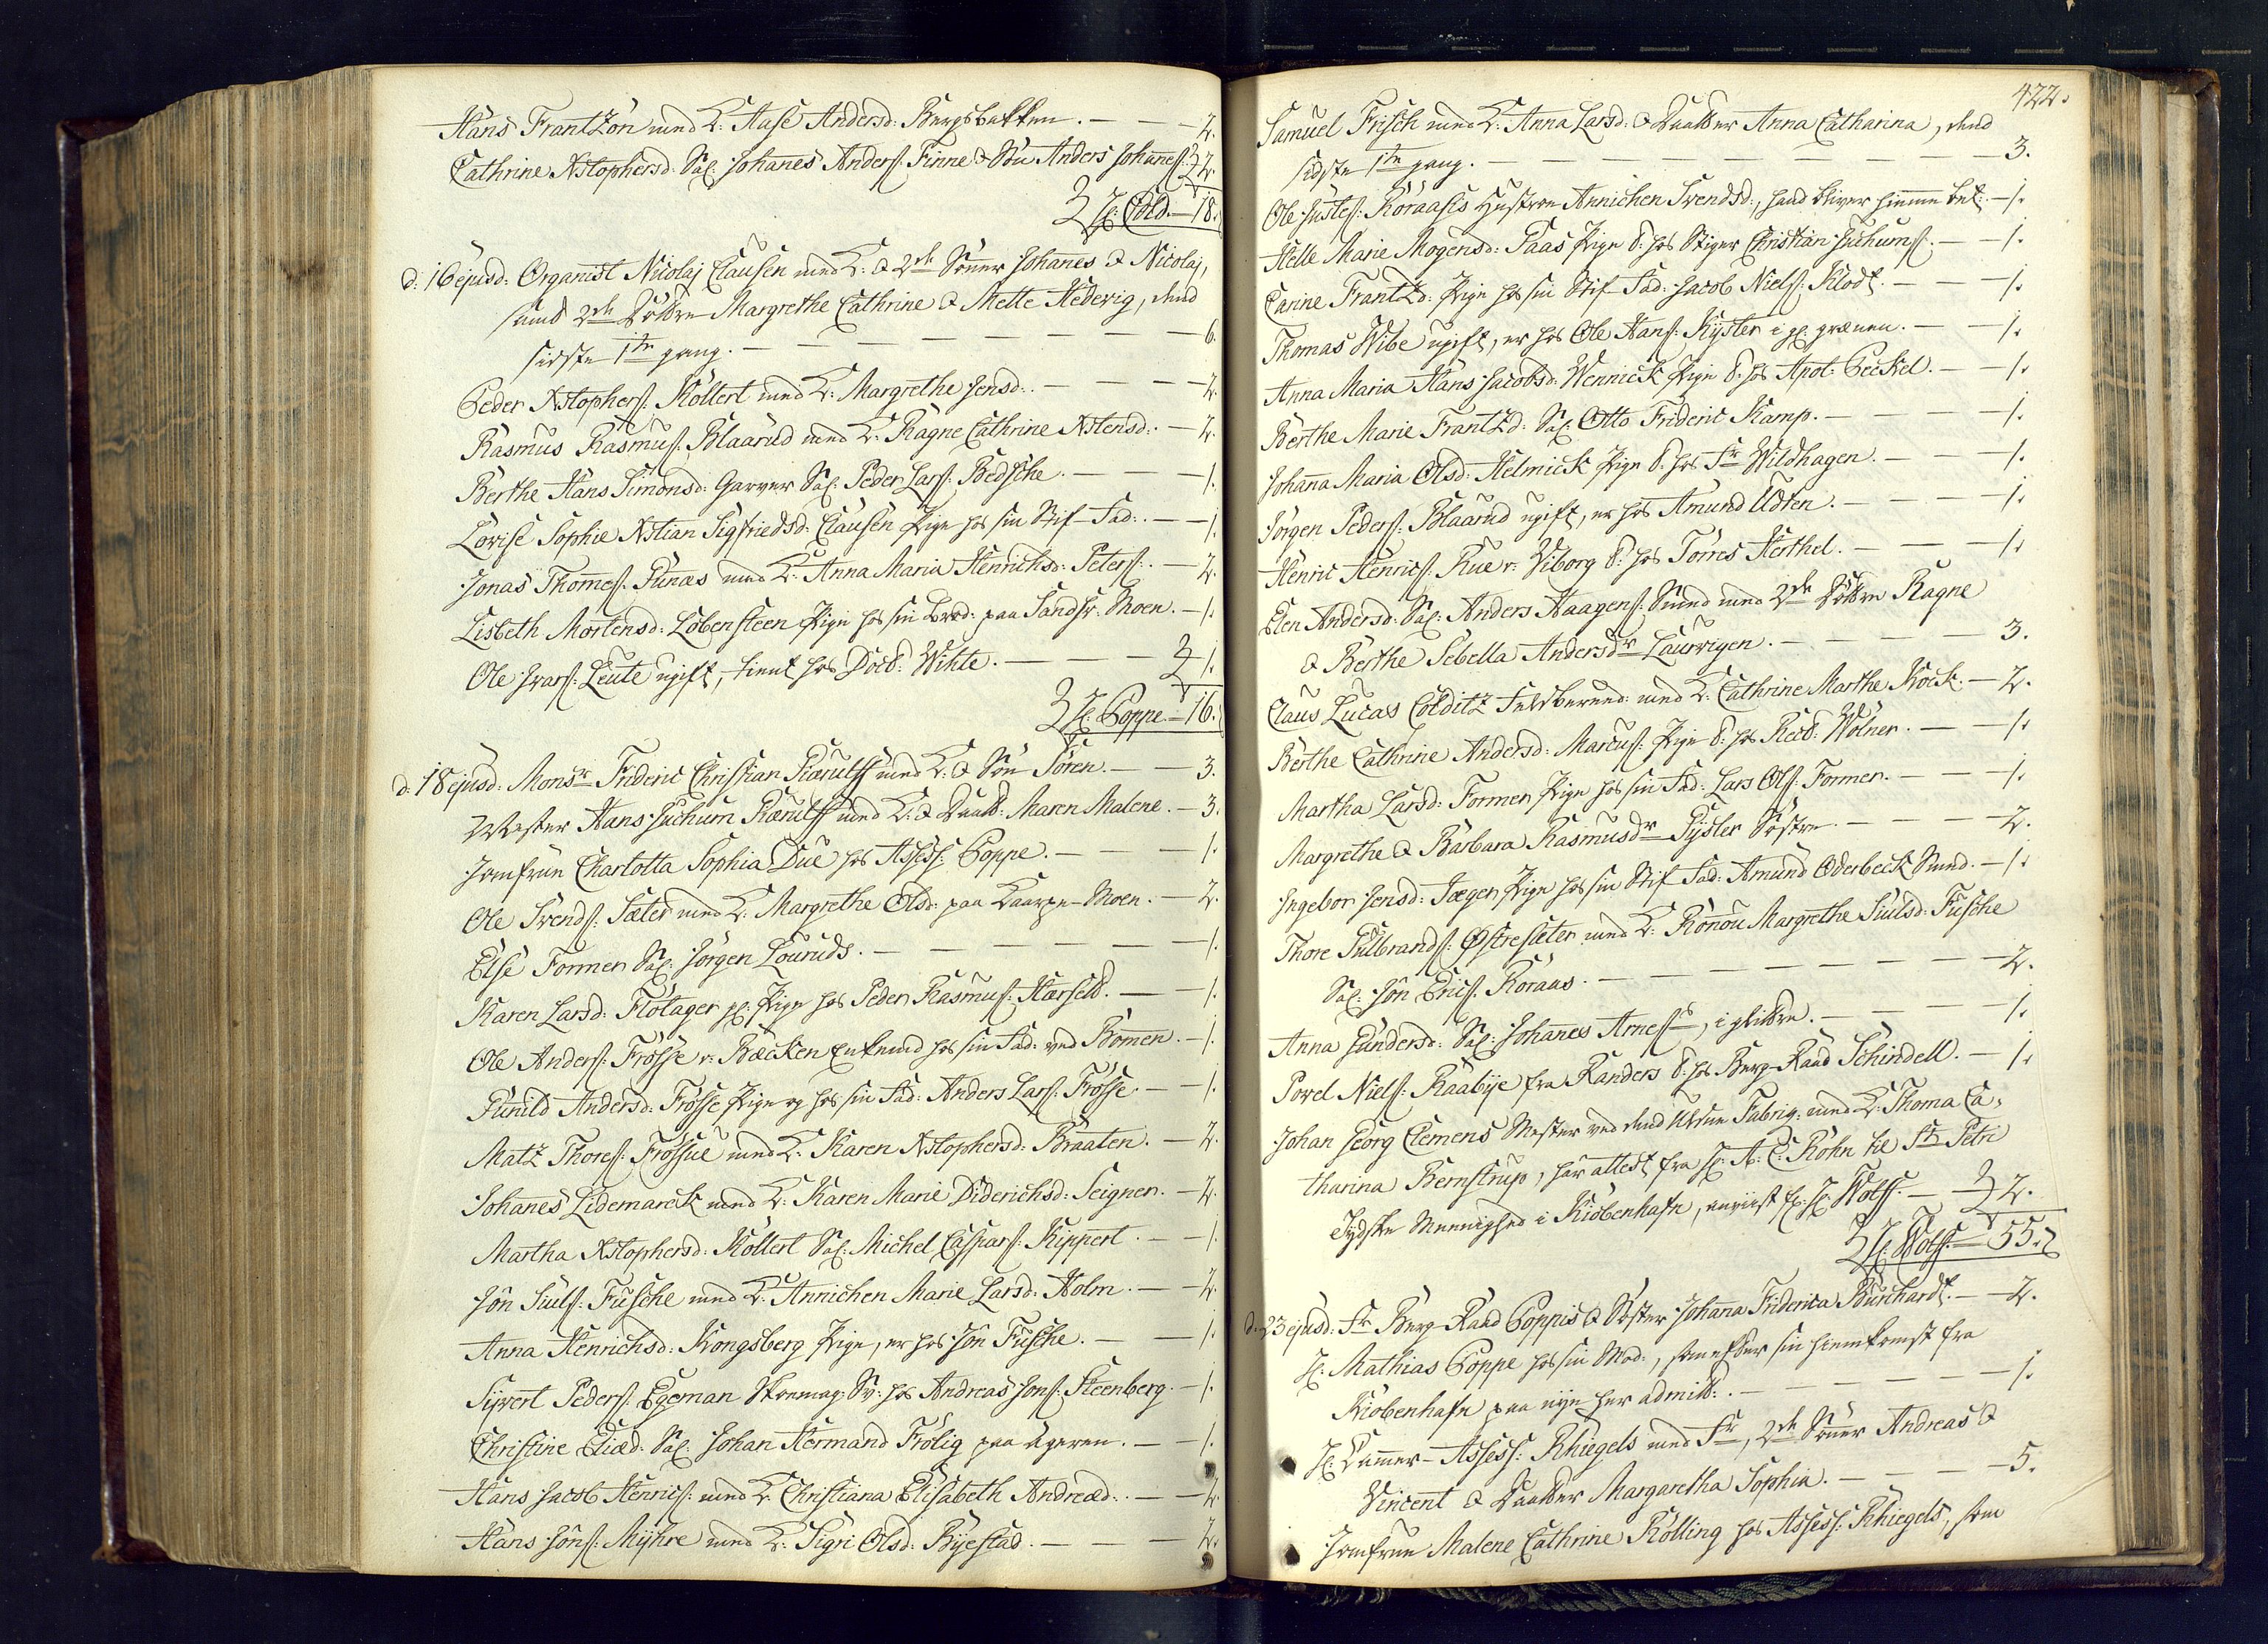 Hans Frantzön med K: Aase Andersd: Bergsbakken. — — 2.
Cathrine Xstophersd: Sal: Johanes Anders: Finne & Sön Anders Johanes: 2.
Hr: Cold. — 18.
d: 16 ejusd: Organist Nicolaj Clausen med K: & 2de Sönner Johanes & Nicolaj,
samt 2de Döttre Margrethe Cathrine & Mette Hedevig, dend
sidste 1ste gang. — — — — — — 6.
Peder Xstophers: Köllert med K: Margrethe Jensd:. — — — 2.
Rasmus Rasmus: Blaarud med K: Ragne Cathrine Xstensd:. — 2.
Berthe Hans Simonsd: Garver Sal: Peder Lars: Bedsche. — — — 1.
Lovise Sophie Xstian Sigfriedsd: Clausen Pige hos sin Stif-Fad:. — 1.
Jonas Thomes: Punæs med K: Anna Maria Henrichsd: Peters:. — 2.
Lisbeth Mortensd: Löbensteen Pige hos sin Brod: paa Sandsv. Moen. — 1.
Ole Ivars: Leute ugift, tient hos Doct: Wihte. — — — 1.
Hr: Poppe. — 16.
d: 18 ejusd: Monsr Frideric Christian Rærulff med K: & Sön Sören. — 3.
Mester Hans Juchum Rærulff med K: & Daatt: Maren Malene. — 3.
Jomfrue Charlotta Sophia Due hos Assess: Poppe. — — — 1.
Ole Svends: Sæter med K: Margrethe Olsd: paa Kaarpe-Moen. — 2.
Else Former Sal: Jörgen Lounids. — — — — — 1.
Karen Larsd: Flötager gl: Pige hos Peder Rasmus: Hærseth. — 1.
Ole Anders: Frösse v: Bæcken Enkemd hos sin Fad: ved Bommen. — 1.
Gunild Andersd: Frösse Pige og hos sin Fad: Anders Lars: Frösse. — 1.
Matz Thores: Frössue med K: Karen Xstophersd: Braaten. — 2.
Johanes Lidemarck med K: Karen Marie Diderichsd: Seigner. — 2.
Martha Xstophersd: Köllert Sal: Michel Caspars: Kippert. — 1.
Jön Siuls: Fusche med K: Annichen Marie Larsd: Holm. — 2.
Anna Henrichsd: Kongsberg Pige, er hos Jön Fusche. — — 1.
Sivert Peders: Egeman Skomag: Sv: hos Andreas Jons: Steenberg. — 1.
Christine Eliæd: Sal: Johan Hermand Frölig paa Ageren. — 1.
Hans Jacob Henrics: med K: Christiana Elisabeth Andreæd:. — 2.
Hans Jöns: Myhre med K: Sigri Olsd: Byestad. — — — 2.
422.
Samuel Frisch med K: Anna Larsd: & Daatter Anna Catharina, dend
sidste 1ste gang. — — — — — — — — — 3.
Ole Justes: Röraases Hustrue Annichen Svendsd:, hand bliver hiemme bet:. — 1.
Helle Marie Mogensd: Paas Pige t: hos Stiger Christian Juchums:. — 1.
Carine Frantzd: Pige hos sin Stif-Fad: Jacob Niels: Klodt. — — 1.
Thomas Wibe ugift, er hos Ole Hans: Kyster i gl: grænen. — — 1.
Anna Maria Hans Jacobsd: Wennick Pige t: hos Apot: Peckel. — 1.
Berthe Marie Frantzd: Sal: Otto Frideric Kamp. — — — — 1.
Johana Maria Olsd: Helmick Pige t: hos Fr Wildhagen. — — 1.
Jörgen Peders: Blaarud ugift, er hos Amund Udten. — — — 1.
Henric Henrics: Rue v: Viborg t: hos Torres Herthel. — — — 1.
Elen Andersd: Sal: Anders Haagens: Smed med 2de Döttre Ragne
& Berthe Sebella Andersdr Laurvigen. — — — — 3.
Claus Lucas Colditz Feldbered: med K: Cathrine Marthe Kock. — 2.
Berthe Cathrine Andersd: Marcus: Pige t: hos Rect: Wölner. — — 1.
Martha Larsd: Former Pige hos sin Fad: Lars Ols: Former. — — 1.
Margrethe & Barbara Rasmusdr Pysler Söstre. — — — 2.
Ingebor Jensd: Jæger Pige hos sin Stif Fad: Amund Oderbeck Smed. — 1.
Thore Gulbrands: Østresæter med K: Ronou Margrethe Siulsd: Fusche
Sal: Jön Erics: Röraas. — — — — — — — 2.
Anna Gundersd: Sal: Johanes Arnes:, i glitre. — — — 1.
Povel Niels: Raabije fra Randers t: hos Berg-Raad Schindell. — 1.
Johan Georg Clemens Mester ved dend Fabriq: med K: Thoma Ca,
tharina Bernstrup, har attest fra Hr: A: C: Röhn til St: Petri
Tydske Meenighed i Kiöbenhafn, anviist hr: Hr: Wolff. — 2.
Hr: Wolff. — 55.
d: 23 ejusd: Fr Berg-Raad Poppes & Söster Johana Friderica Burchardt. — 2.
Hr: Mathias Poppe hos sin Mod:, som efter sin hiemkomst fra
Kiöbenhafn paa nye her admitt:. — — — — — 1.
Hr: Kammer-Assess: Rhiegels med Fr, 2de Sönner Andreas &
Vincent & Daatter Margaretha Sophia. — — — — 5.
Jomfrue Malene Cathrine Rölling hos Assess: Rhiegels, som